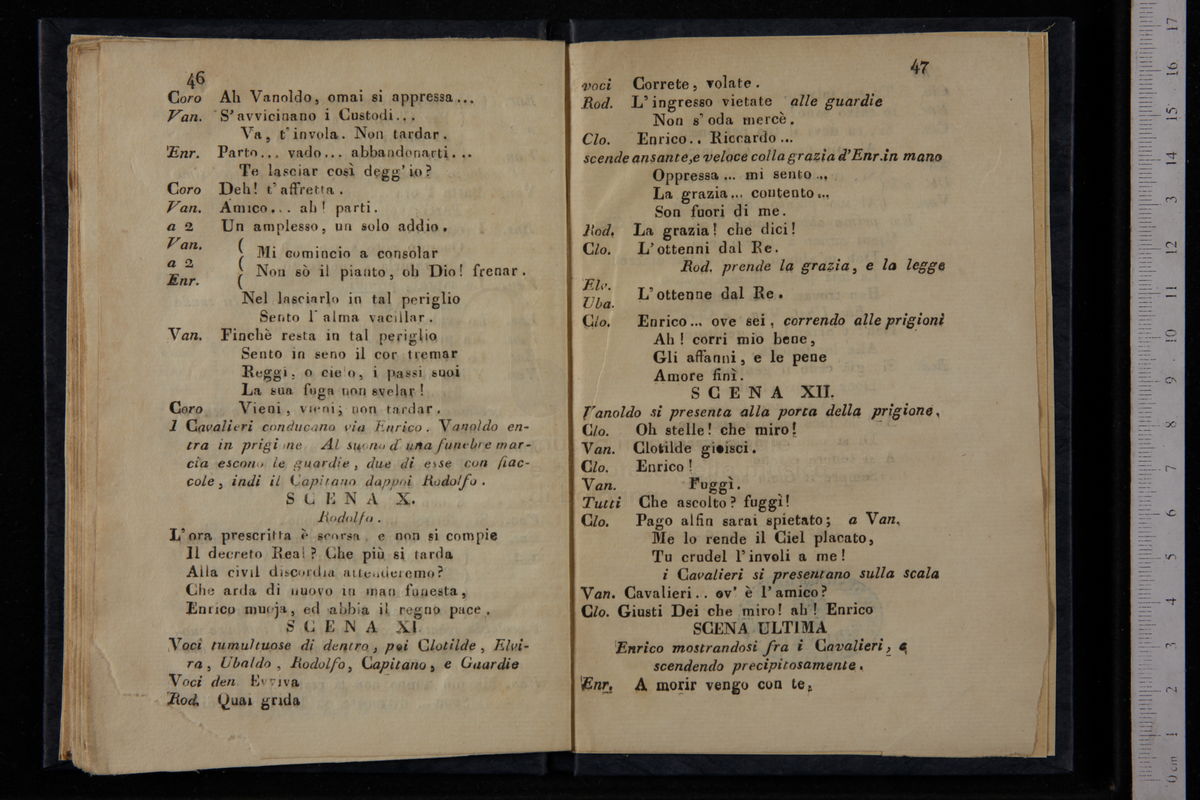 46
Coro Ah Vanoldo, omai si appressa...
Van. S'avvicinano i Custodi...
Va, t'invola. Non tardar.
Enr. Parto... vado... abbandonarti...
Te lasciar così degg'io?
Coro Deh! t'affretta.
Van. Amico... ah! parti.
a 2 Un amplesso, un solo addio.
Van.
a 2 ( Mi comincio a consolar
Enr. ( Non sò il pianto, oh Dio! frenar.
Nel lasciarlo in tal periglio
Sento l'alma vacillar.
Van. Finchè resta in tal periglio
Sento in seno il cor tremar
Reggi, o cielo, i passi suoi
La sua fuga non svelar!
Coro Vieni, vieni; non tardar.
I Cavalieri conducano via Enrico. Vanoldo en-
tra in prigione Al suono d'una funebre mar-
cia escono le guardie, due di esse con fiac-
cole, indi il Capitano dappoi Rodolfo.
SCENA X.
Rodolfo.
L'ora prescritta è scorsa, e non si compie
Il decreto Real? Che più si tarda
Alla civil discordia attenderemo?
Che arda di nuovo in man funesta,
Enrico muoja, ed abbia il regno pace.
SCENA XI.
Voci tumultuose di dentro, poi Clotilde, Elvi-
ra, Ubaldo, Rodolfo, Capitano, e Guardie
Voci den. Evviva
Rod. Quai grida
47
voci Correte, volate.
Rod. L'ingresso vietate alle guardie
Non s'oda mercè.
Clo. Enrico.. Riccardo...
scende ansante, e veloce colla grazia d'Enr. in mano
Oppressa... mi sento...
La grazia... contento...
Son fuori di me.
Rod. La grazia! che dici!
Clo. L'ottenni dal Re.
Rod. prende la grazia, e la legge
Elv.
Uba. L'ottenne dal Re.
Clo. Enrico... ove sei, correndo alle prigioni
Ah! corri mio bene,
Gli affanni, e le pene
Amore finì.
SCENA XII.
Vanoldo si presenta alla porta della prigione,
Clo. Oh stelle! che miro!
Van. Clotilde gioisci.
Clo. Enrico!
Van. Fuggì.
Tutti Che ascolto? fuggì!
Clo. Pago alfin sarai spietato; a Van.
Me lo rende il Ciel placato,
Tu crudel l'involi a me!
i Cavalieri si presentano sulla scala
Van. Cavalieri.. ov' è l'amico?
Clo. Giusti Dei che miro! ah! Enrico
SCENA ULTIMA
Enrico mostrandosi fra i Cavalieri, e
scendendo precipitosamente.
Enr. A morir vengo con te,
0 cm 1 2 3 4 5 6 7 8 9 10 11 12 13 14 15 16 17